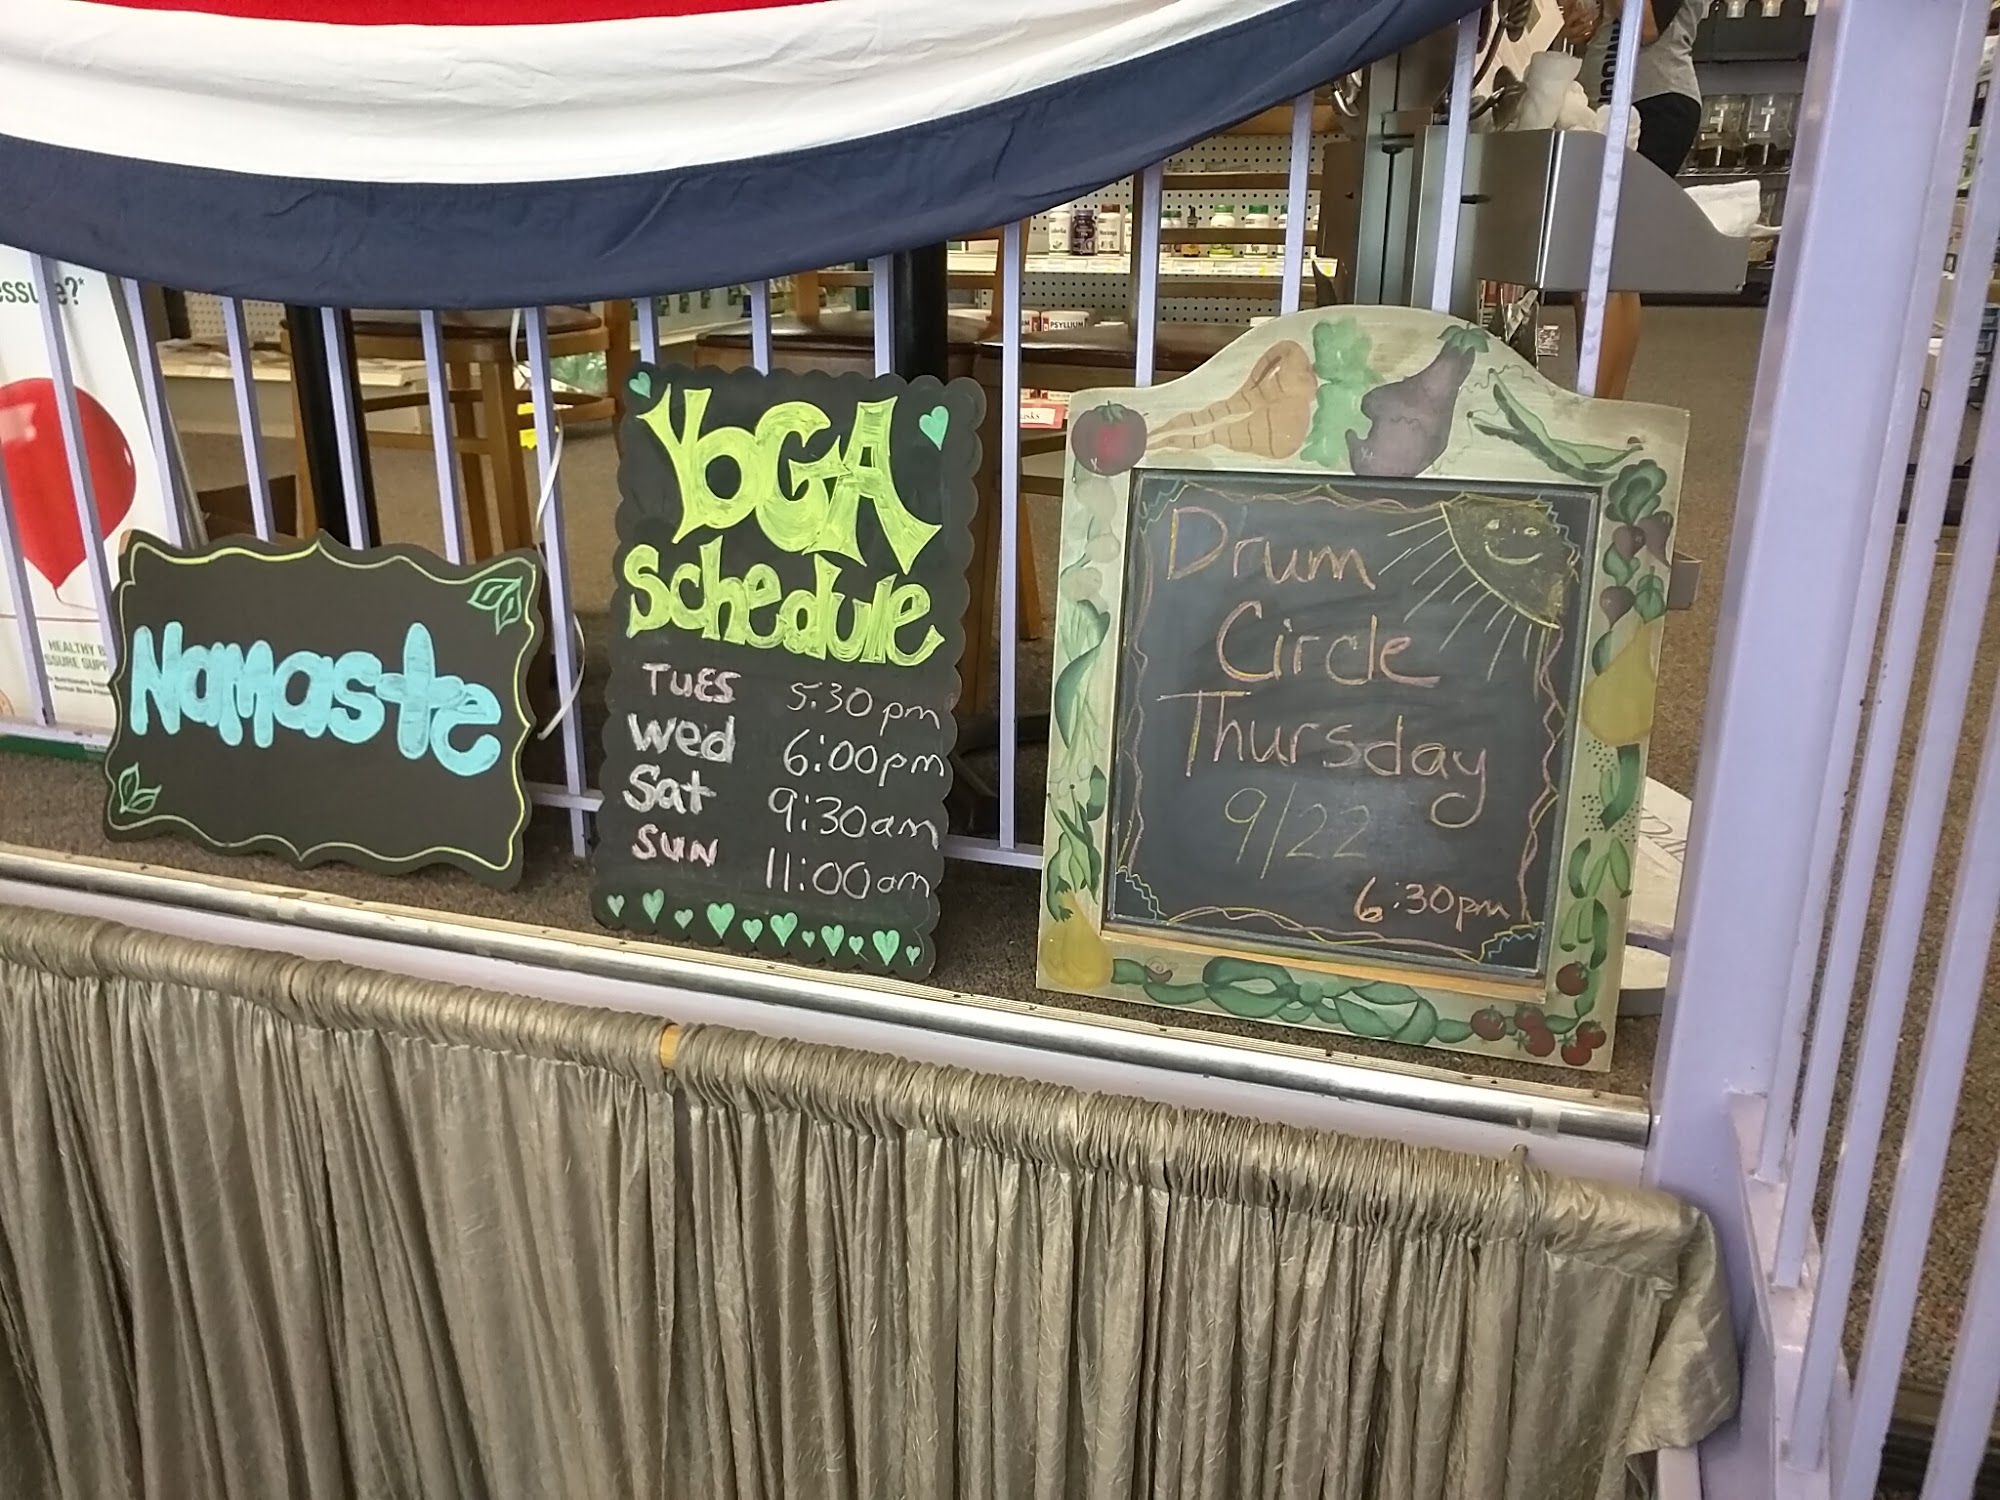 Namaste
YOGA
Schedule
TUES 5:30 pm
Wed 6:00pm
Sat 9:30am
SUN 11:00am
Drum
Circle
Thursday
9/22
6:30pm
PSYLLIUM
HEALTHY